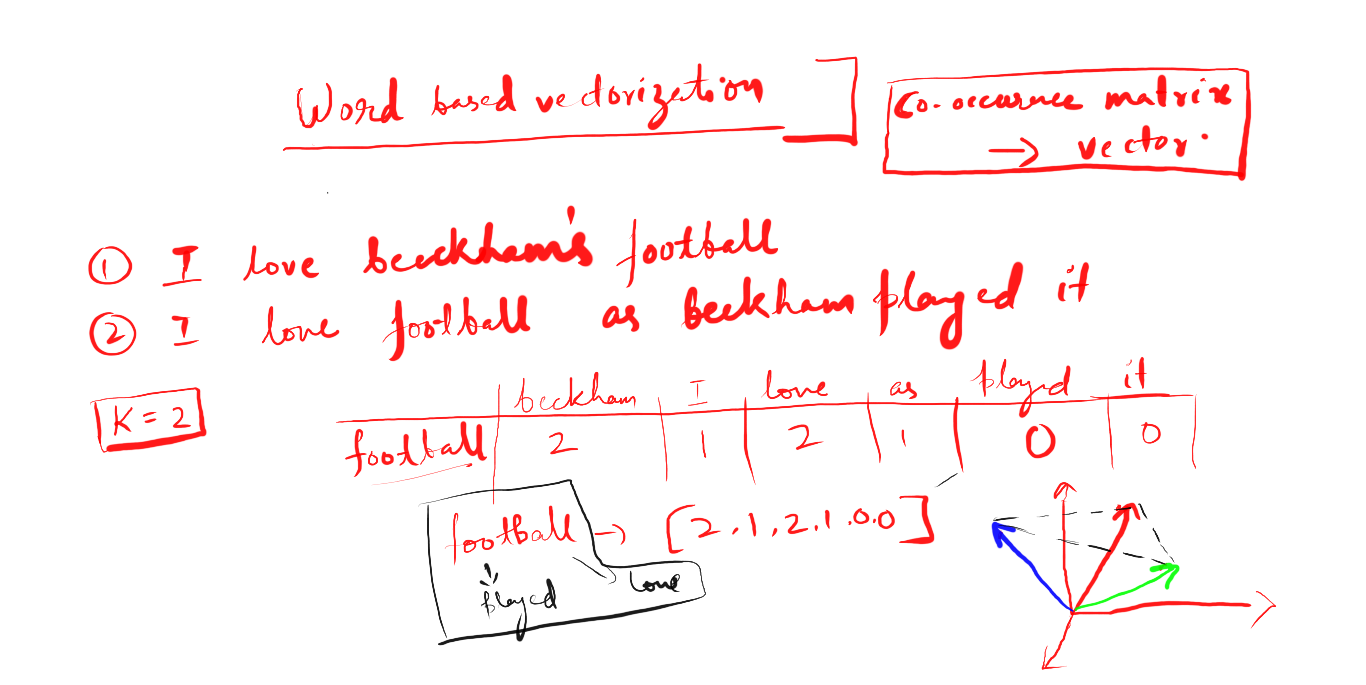 Word based vectorization
Co-occurence matrix
→ vector.
① I love beckham's football
② I love football as beckham played it
K = 2
beckham I love as played it
football 2 1 2 1 0 0
football → [2,1,2,1,0,0]
played love